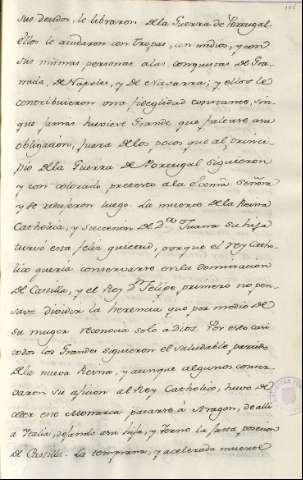 sus deudos, le libraron de la Guerra de Portugal.
Ellos le aiudaron con tropas, con medios, y con
sus mismas personas a las conquistas de Gra-
nada, de Napoles, y de Navarra; y ellos le
contribuieron una fidelidad constante, sin
que jamas huviese Grande que faltase a su
obligacion, fuera de los pocos que al princi-
pio de la Guerra de Portugal siguieron
y con colorado pretexto a la Señora
y se reduxeron luego. La muerte de la Reyna
Catholica, y succesion de D.ª Juana su hija
turvó esta feliz quietud, porque el rey Catho-
lico queria conservarse en la dominacion
de Castilla, y el Rey D. Felipe primero no pen-
sava dividir la herencia que por medio de
su muger reconocia solo a Dios. Por esto casi
todos los Grandes siguieron el saludable partido
de la nueva Reyna, y aunque algunos conser-
varon su aficion al Rey Catholico, huvo de
ceder este Monarca pasarse à Aragon, de alli
a Italia, dejando a su hija, y Yerno la posesion
de Castilla. La temprana, y acelerada muerte